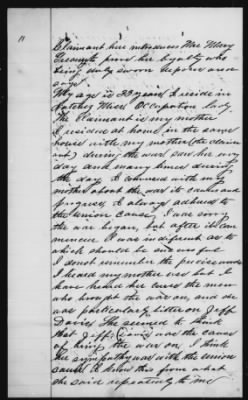 11
Claimant here introduces Mrs Mary
prove her loyalty who
being duly sworn deposes and
says
My age is 33 years, I reside in
Natchez Miss. Occupation Lady
The Claimant is my mother
I resided at home in the same
house with my mother (the claim
ant) during the war saw her every
day and many times during
the day I conversed with my
mother about the war its causes and
progress, I always adhered to
the Union Cause, I was sorry
the war began, but after it com
menced I was indifferent as to
which should be successful
I do not remember the precise words
I heard my mother use but I
have heard her curse the men
who brought the war on, and she
was particularly bitter on Jeff
Davis She seemed to think
that Jeff Davis was the cause
of bring the war on, I think
her sympathy was with the union
cause I know this from what
she said repeatedly to me